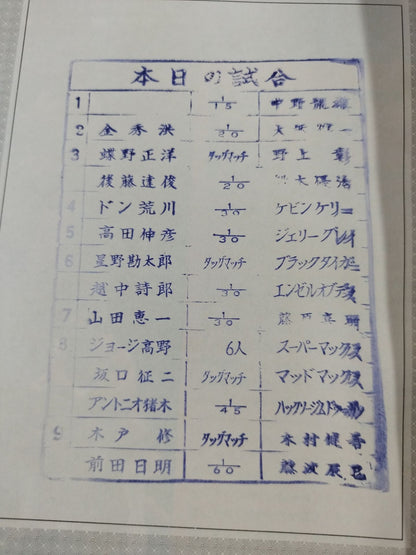 本日の試合
1 1/15 中野龍雄
2 金秀洪 1/20 大 一
3 蝶野正洋 タッグマッチ 野上 彰
後藤達俊 1/20 大
4 ドン荒川 1/30 ケビンケリー
5 高田伸彦 1/30 ジェリーグレイ
6 星野勘太郎 タッグマッチ ブラックタイガー
越中詩郎 1/30 エンゼルオブデス
7 山田恵一 1/30 藤
8 ジョージ高野 6人 スーパーマックス
坂口征二 タッグマッチ マッドマックス
アントニオ猪木 1/45
9 木戸 修 タッグマッチ 木村健吾
前田日明 1/60 藤波辰巳